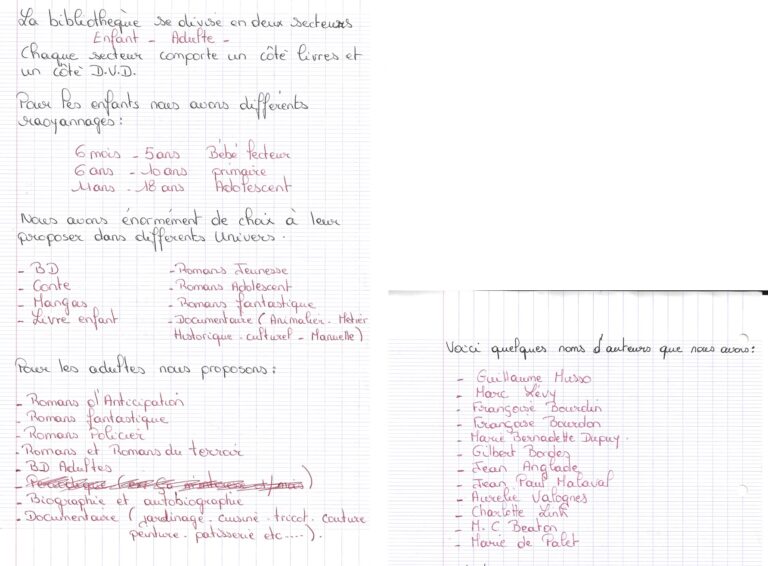 La bibliothèque se divise en deux secteurs
Enfant - Adulte -
Chaque secteur comporte un côté livres et
un côté D.V.D.
Pour les enfants nous avons différents
rayonnages :
6 mois - 5 ans Bébé lecteur
6 ans - 10 ans primaire
11 ans - 18 ans Adolescent
Nous avons énormément de choix à leur
proposer dans différents Univers.
- BD
- Conte
- Mangas
- Livre enfant
- Romans Jeunesse
- Romans Adolescent
- Romans fantastique
- Documentaire ( Animalier - Métier
Historique - culturel - Manuelle )
Pour les adultes nous proposons :
- Romans d'Anticipation
- Romans fantastique
- Romans Policier
- Romans et Romans du terroir
- BD Adultes
- Biographie et autobiographie
- Documentaire ( jardinage - cuisine - tricot - couture
peinture - patisserie etc ..... ).
Voici quelques noms d'auteurs que nous avons :
- Guillaume Musso
- Marc Lévy
- Françoise Bourdin
- Françoise Bourdon
- Marie Bernadette Dupuy.
- Gilbert Bordes
- Jean Anglade
- Jean Paul Malaval
- Aurelie Valognes
- Charlotte Link
- M. C Beaton
- Marie de Palet